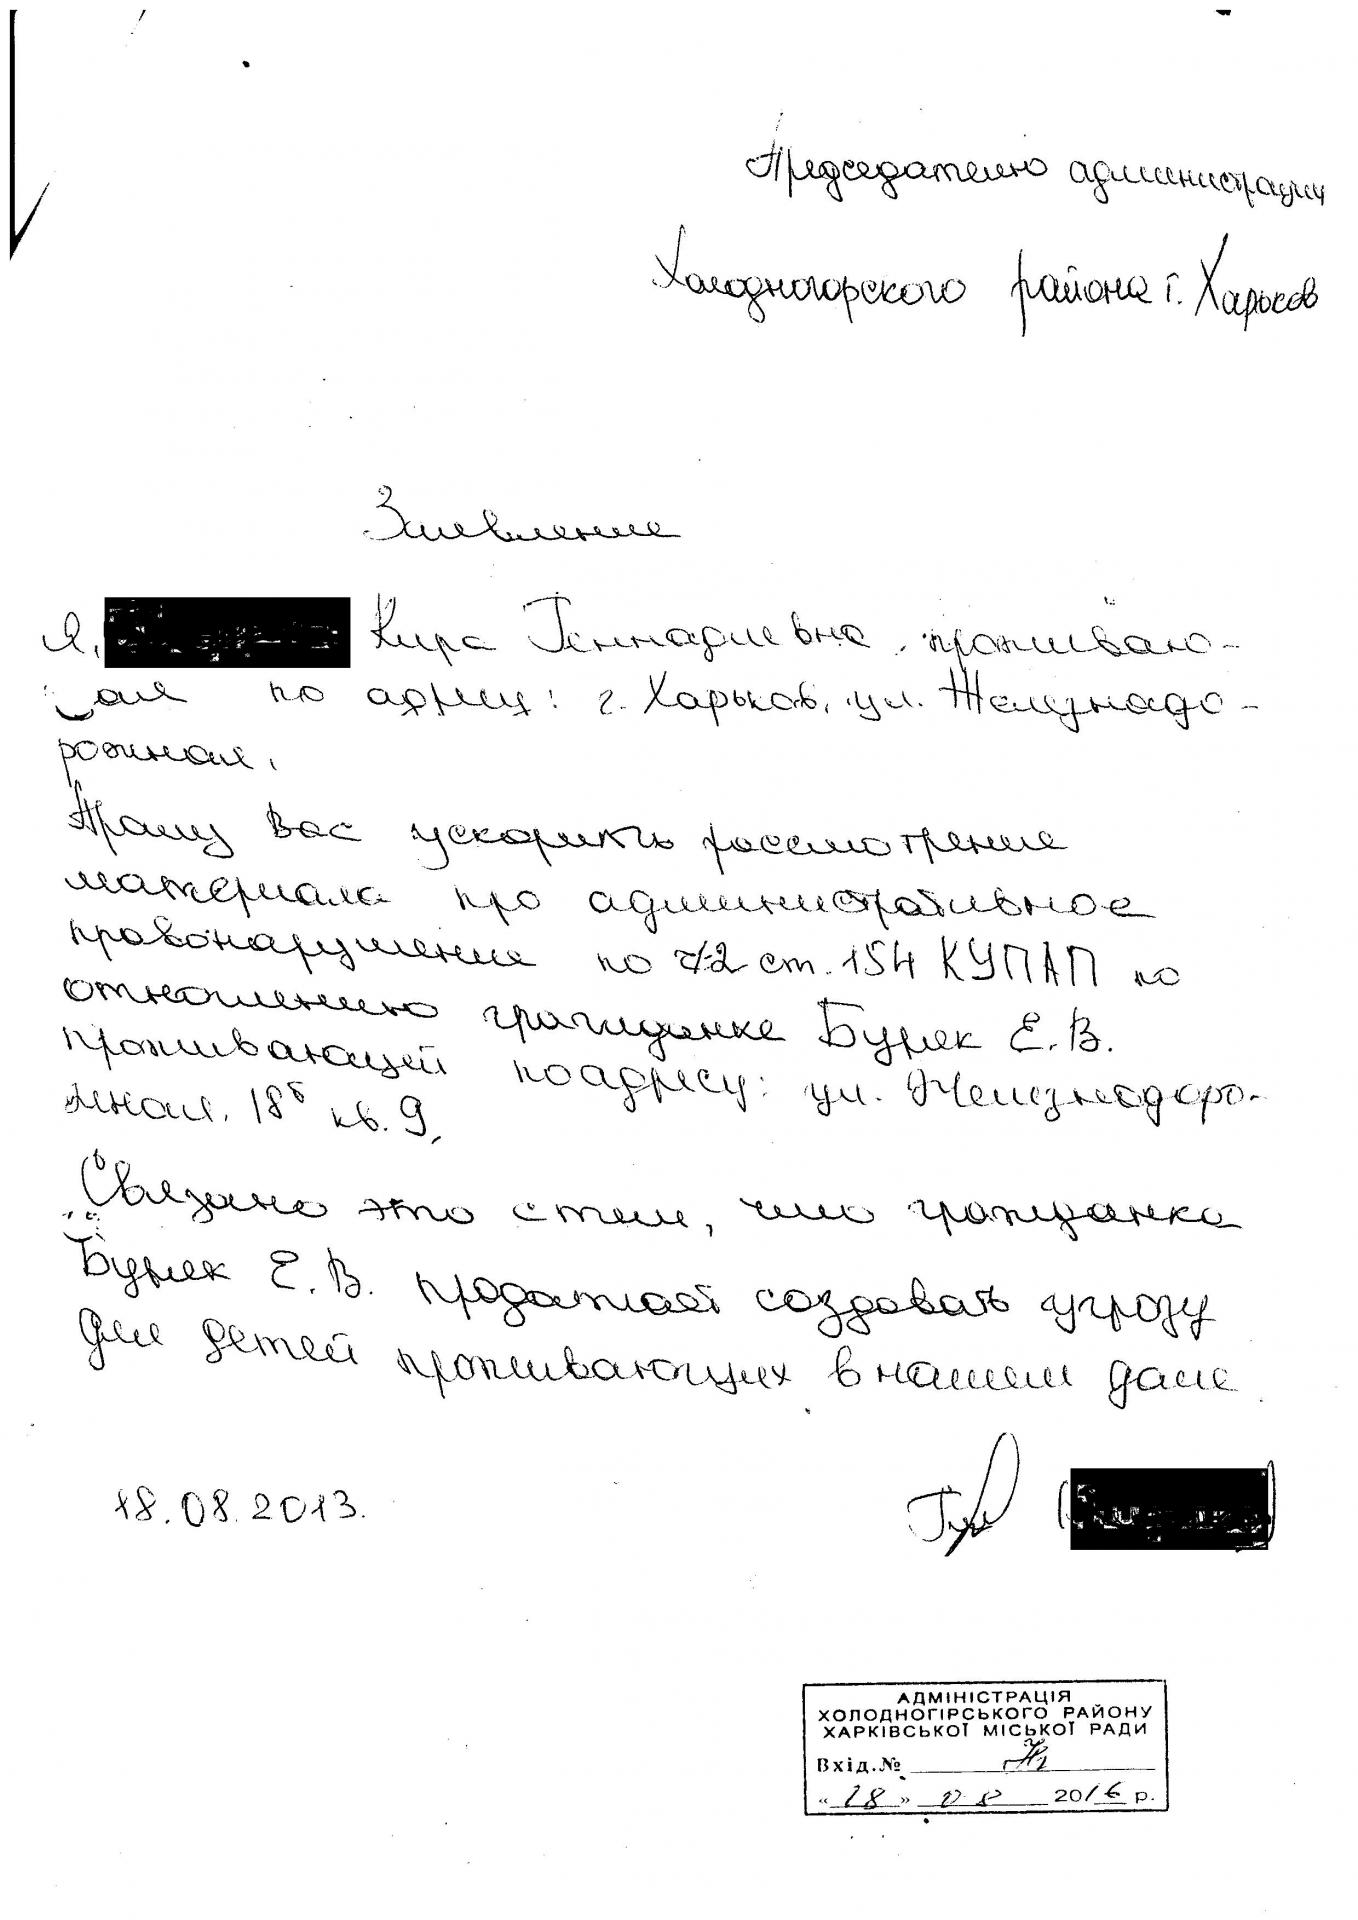 Председателю администрации
Холодногорского района г. Харьков
Заявление
Я, Кира Геннадиевна, проживаю-
щая по адресу: г. Харьков, ул. Железнадо-
рожная.
Прошу Вас ускорить рассмотрение
материала про административное
правонарушение по ч2 ст. 154 КУПАП по
отношению гражданке Буряк Е.В.
проживающей по адресу: ул. Железнодоро-
жная. 18б кв. 9.
Связано это с тем, что гражданка
Буряк Е.В. продолжает создовать угрозу
для детей проживающих в нашем доме
18.08.2013.
АДМІНІСТРАЦІЯ
ХОЛОДНОГІРСЬКОГО РАЙОНУ
ХАРКІВСЬКОЇ МІСЬКОЇ РАДИ
Вхід.№
«18» 08 2016 р.